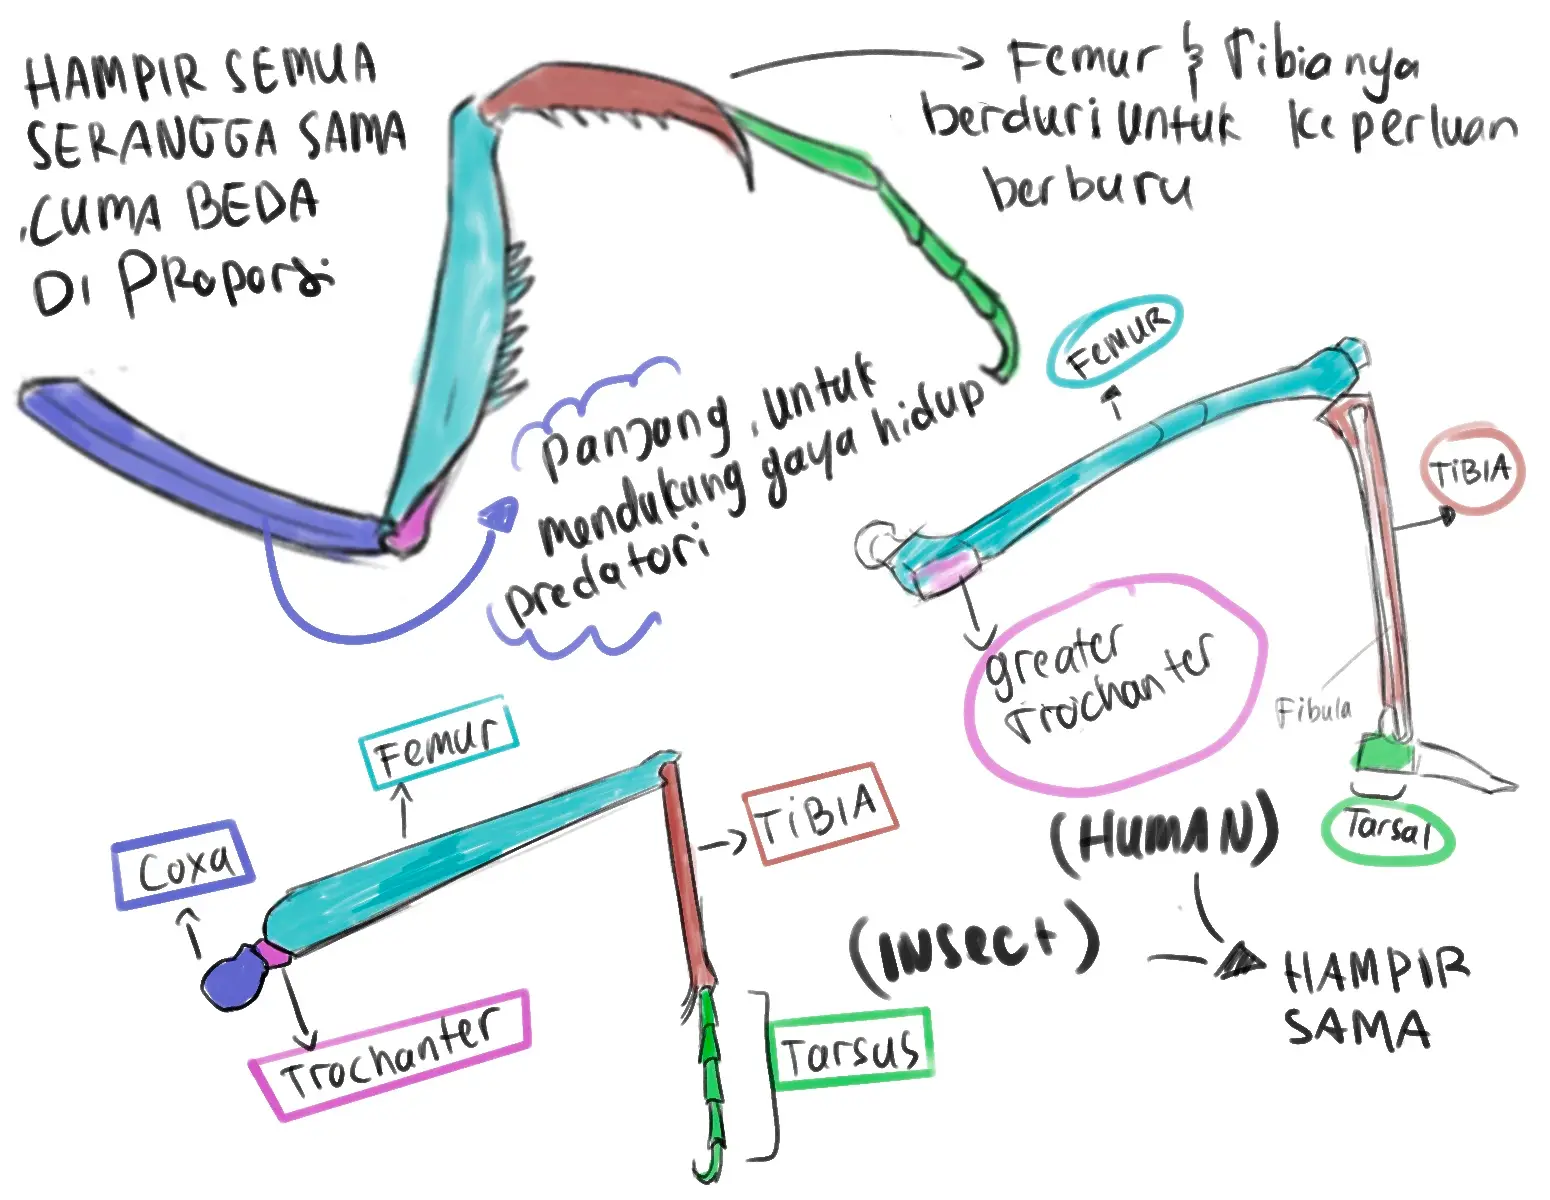 HAMPIR SEMUA
SERANGGA SAMA
,CUMA BEDA
DI PROPORSi
Femur & Tibianya
berduri untuk keperluan
berburu
panjang, untuk
mendukung gaya hidup
predatori
FEMUR
TiBIA
greater
Trochanter
Fibula
Tarsal
(HUMAN)
Femur
TiBIA
Coxa
Trochanter
Tarsus
(INSect)
HAMPIR
SAMA